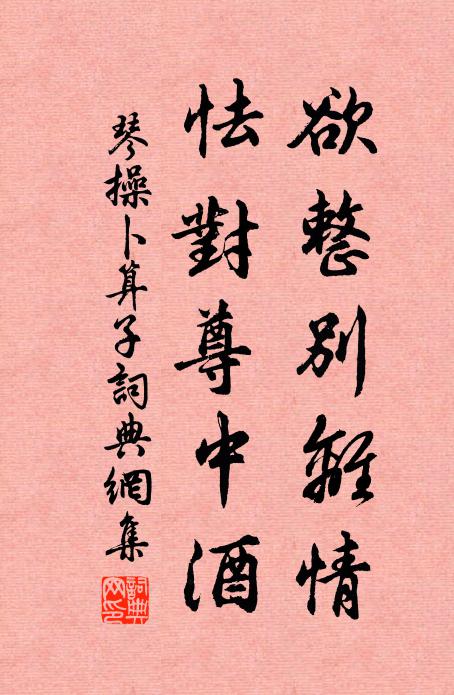 欲整別離情
怯對尊中酒
琴操卜算子詞典網集
詞典網印